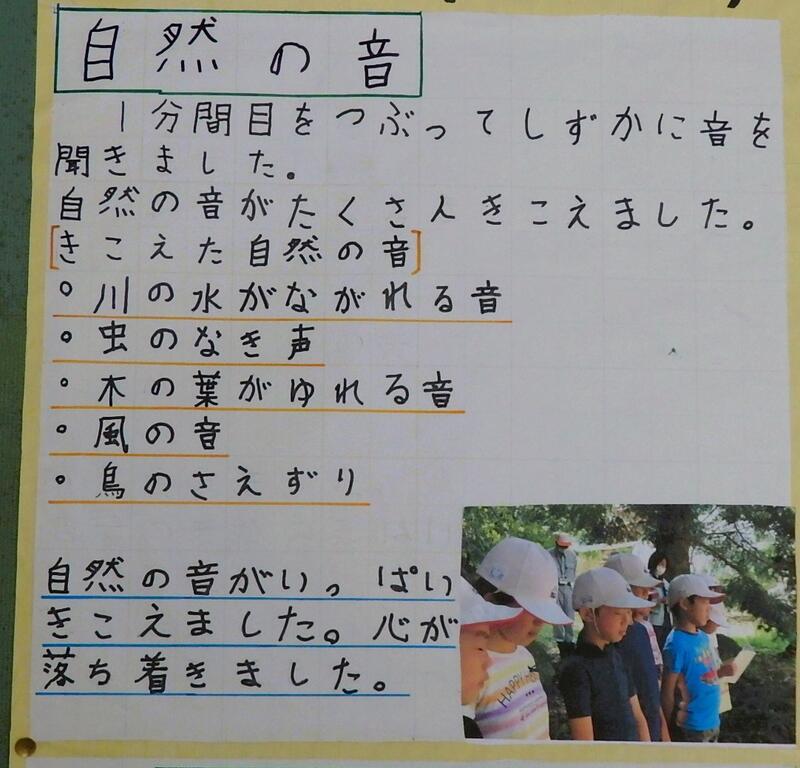 自然の音
1分間目をつぶってしずかに音を
聞きました。
自然の音がたくさんきこえました。
[きこえた自然の音]
・川の水がながれる音
・虫のなき声
・木の葉がゆれる音
・風の音
・鳥のさえずり
自然の音がいっぱい
きこえました。心が
落ち着きました。
HAPPY